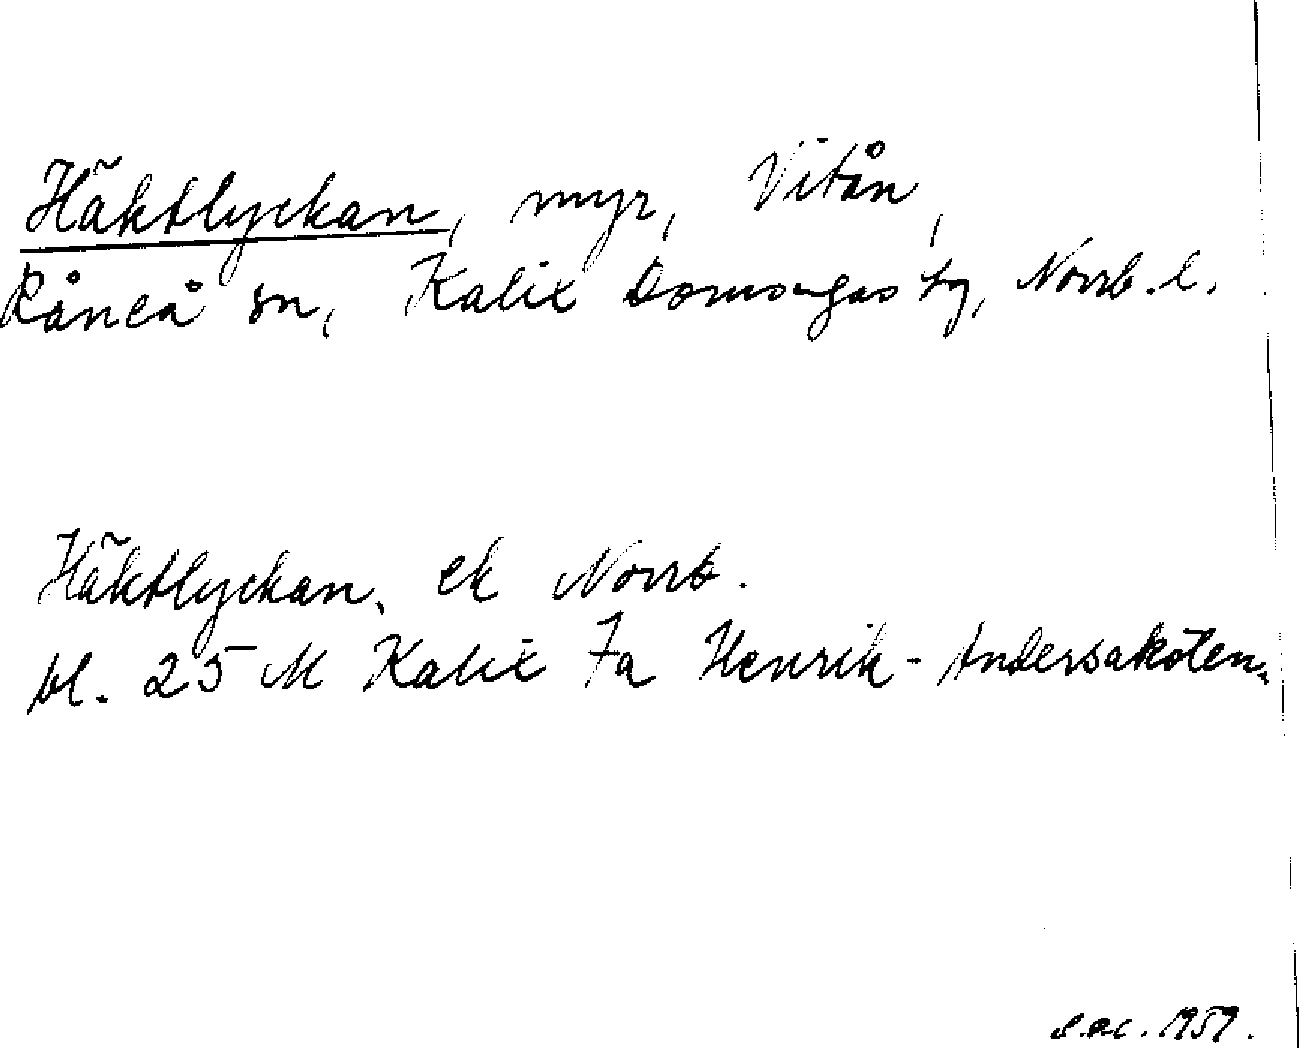 Häktlyckan, myr, Vitån,
Råneå sn, Kalix Domsagas tg, Norrb. l.
Häktlyckan, ek Norrb.
bl. 25 M Kalix Fa Henrik-Andersaköten.
1959.